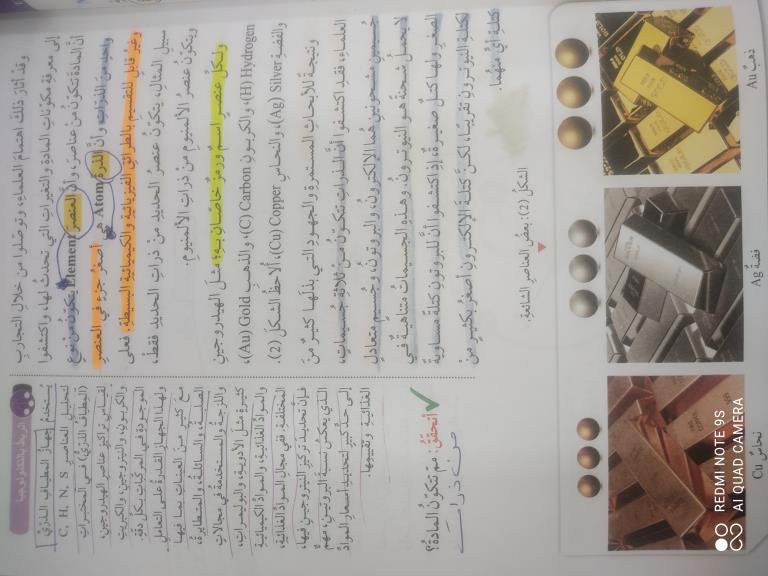 وقدْ أثارَ ذلكَ اهتمامَ العلماءِ، وتوصّلوا منْ خلالِ التجاربِ
إلى معرفةِ مكوّناتِ المادةِ والتغيراتِ التي تحدثُ لها، واكتشفوا
أنَّ المادةَ تتكوّنُ منْ عناصرَ، وأنَّ العنصرَ Element يتكوّنُ منْ نوعٍ
واحدٍ منَ الذراتِ، وأنَّ الذرةَ Atom هيَ أصغرُ جزءٍ في العنصرِ
وغيرُ قابلٍ للتقسيمِ بالطرائقِ الفيزيائيةِ والكيميائيةِ البسيطةِ. فعلى
سبيلِ المثالِ، يتكوّنُ عنصرُ الحديدِ منْ ذراتِ الحديدِ فقطْ،
ويتكوّنُ عنصرُ الألمنيومِ منْ ذراتِ الألمنيومِ.
ولكلِّ عنصرٍ اسمٌ ورمزٌ خاصّانِ بهِ؛ مثلَ الهيدروجينِ
(H) Hydrogen، والكربونِ (C) Carbon، والذهبِ (Au) Gold،
والفضةِ (Ag) Silver، والنحاسِ (Cu) Copper، ألاحظُ الشكلَ (2).
ونتيجةً للأبحاثِ المستمرةِ والجهودِ التي بذلَها كثيرٌ منَ
العلماءِ، فقدِ اكتشفوا أنَّ الذراتِ تتكوّنُ منْ ثلاثةِ جُسيماتٍ،
جُسيمينِ مشحونينِ هما الإلكترونُ، والبروتونُ، وجُسيمٍ متعادلٍ
لا يحملُ شحنةً هوَ النيوترونُ. وهذهِ الجسيماتُ متناهيةٌ في
الصغرِ ولها كتلٌ صغيرةٌ، إذِ اكتشفوا أنَّ للبروتونِ كتلةً مساويةً
لكتلةِ النيوترونِ تقريبًا، لكنَّ كتلةَ الإلكترونِ أصغرُ بكثيرٍ منْ
كتلةِ أيٍّ منهُما.
الشكلُ (2): بعضُ العناصرِ الشائعةِ.
ذهب Au
فضة Ag
نحاس Cu
الربطُ بالتكنولوجيا
يُستخدمُ جهازُ المطيافِ الذريِّ
لتحليلِ العناصرِ C, H, N, S
(المطيافُ الذريُّ) في المختبراتِ
لقياسِ تراكيزِ عناصرِ الهيدروجينِ،
والكربونِ، والنيتروجينِ، والكبريتِ
الموجودةِ في المركّباتِ بكلِّ دقةٍ.
ولهذا الجهازِ القدرةُ على التعاملِ
معَ كثيرٍ منَ العيناتِ بما فيها
الصلبةُ، والسائلةُ، والمتطايرةُ،
واللزجةُ، والمستخدمةُ في مجالاتٍ
كثيرةٍ مثلِ الأدويةِ، والبوليمراتِ،
والموادِّ الغذائيةِ، والموادِّ الكيميائيةِ
المختلفةِ. ففي مجالِ الموادِّ الغذائيةِ،
فإنَّ تحديدَ تركيزِ النيتروجينِ فيها،
الذي يعكسُ نسبةَ البروتينِ، مهمٌّ
إلى حدٍّ كبيرٍ لتحديدِ أسعارِ الموادِّ
الغذائيةِ وتقييمِها.
أتحقّقُ: ممَّ تتكوّنُ المادةُ؟
من ذرات
REDMI NOTE 9S
AI QUAD CAMERA